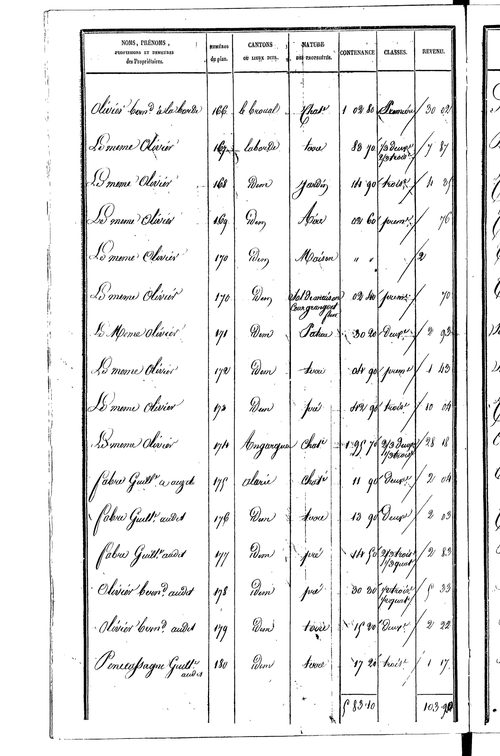 NOMS, PRÉNOMS, PROFESSIONS ET DEMEURES des Propriétaires. NUMÉROS du plan. CANTONS OU LIEUX DITS. NATURE DES PROPRIÉTÉS. CONTENANCE CLASSES. REVENU.
Olivier bern.d à laborde 166 le broual Chat.e 1 02 80 Première 30 02
Le meme Olivier 167 laborde terre 83 70 1/3 deux.e 2/3 trois.e 7 87
Le meme Olivier 168 idem jardin 14 90 trois.e 4 35
Le meme Olivier 169 idem Aire 02 60 prem.e 76
Le meme Olivier 170 idem Maison " " 2
Le meme Olivier 170 idem Sol de maison 02 40 prem.e 70
Le Meme Olivier 171 idem Patus 30 20 deux.e 2 92
Le meme Olivier 172 idem terre 04 90 prem.e 1 43
Le meme Olivier 173 idem pré 42 90 trois.e 10 04
Le meme Olivier 174 Chat.e 1 95 70 2/3 deux.e 1/3 trois.e 28 18
fabre Guill.e a auzet 175 Chat.e 11 90 deux.e 2 04
fabre Guill.e audet 176 idem terre 13 90 deux.e 2 03
fabre Guill.e audet 177 idem pré 14 50 2/3 trois.e 1/3 quat.e 2 83
Olivier bern.d audet 178 idem pré 30 30 1/2 trois.e 1/2 quat.e 5 33
Olivier bern.d audet 179 idem terre 15 20 deux.e 2 22
Guill.e audet 180 idem terre 17 20 trois.e 1 17
5 83 10 103 90